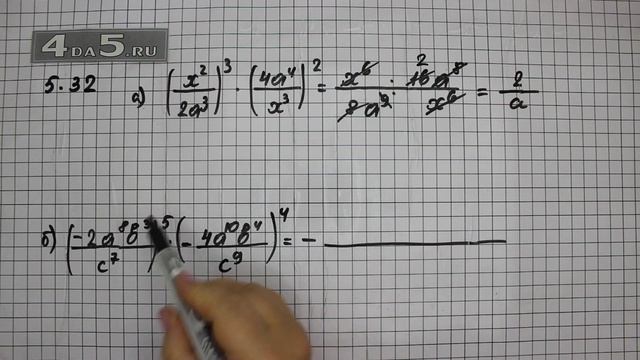 4DA5.RU
5.32
а) (x²/2a³)³ · (4a⁴/x³)² = x⁶ · 16a⁸/8a⁹ · x⁶ = 2/a
б) (-2a⁸b³/c⁷)⁵ · (-4a¹⁰b⁴/c⁹)⁴ = -